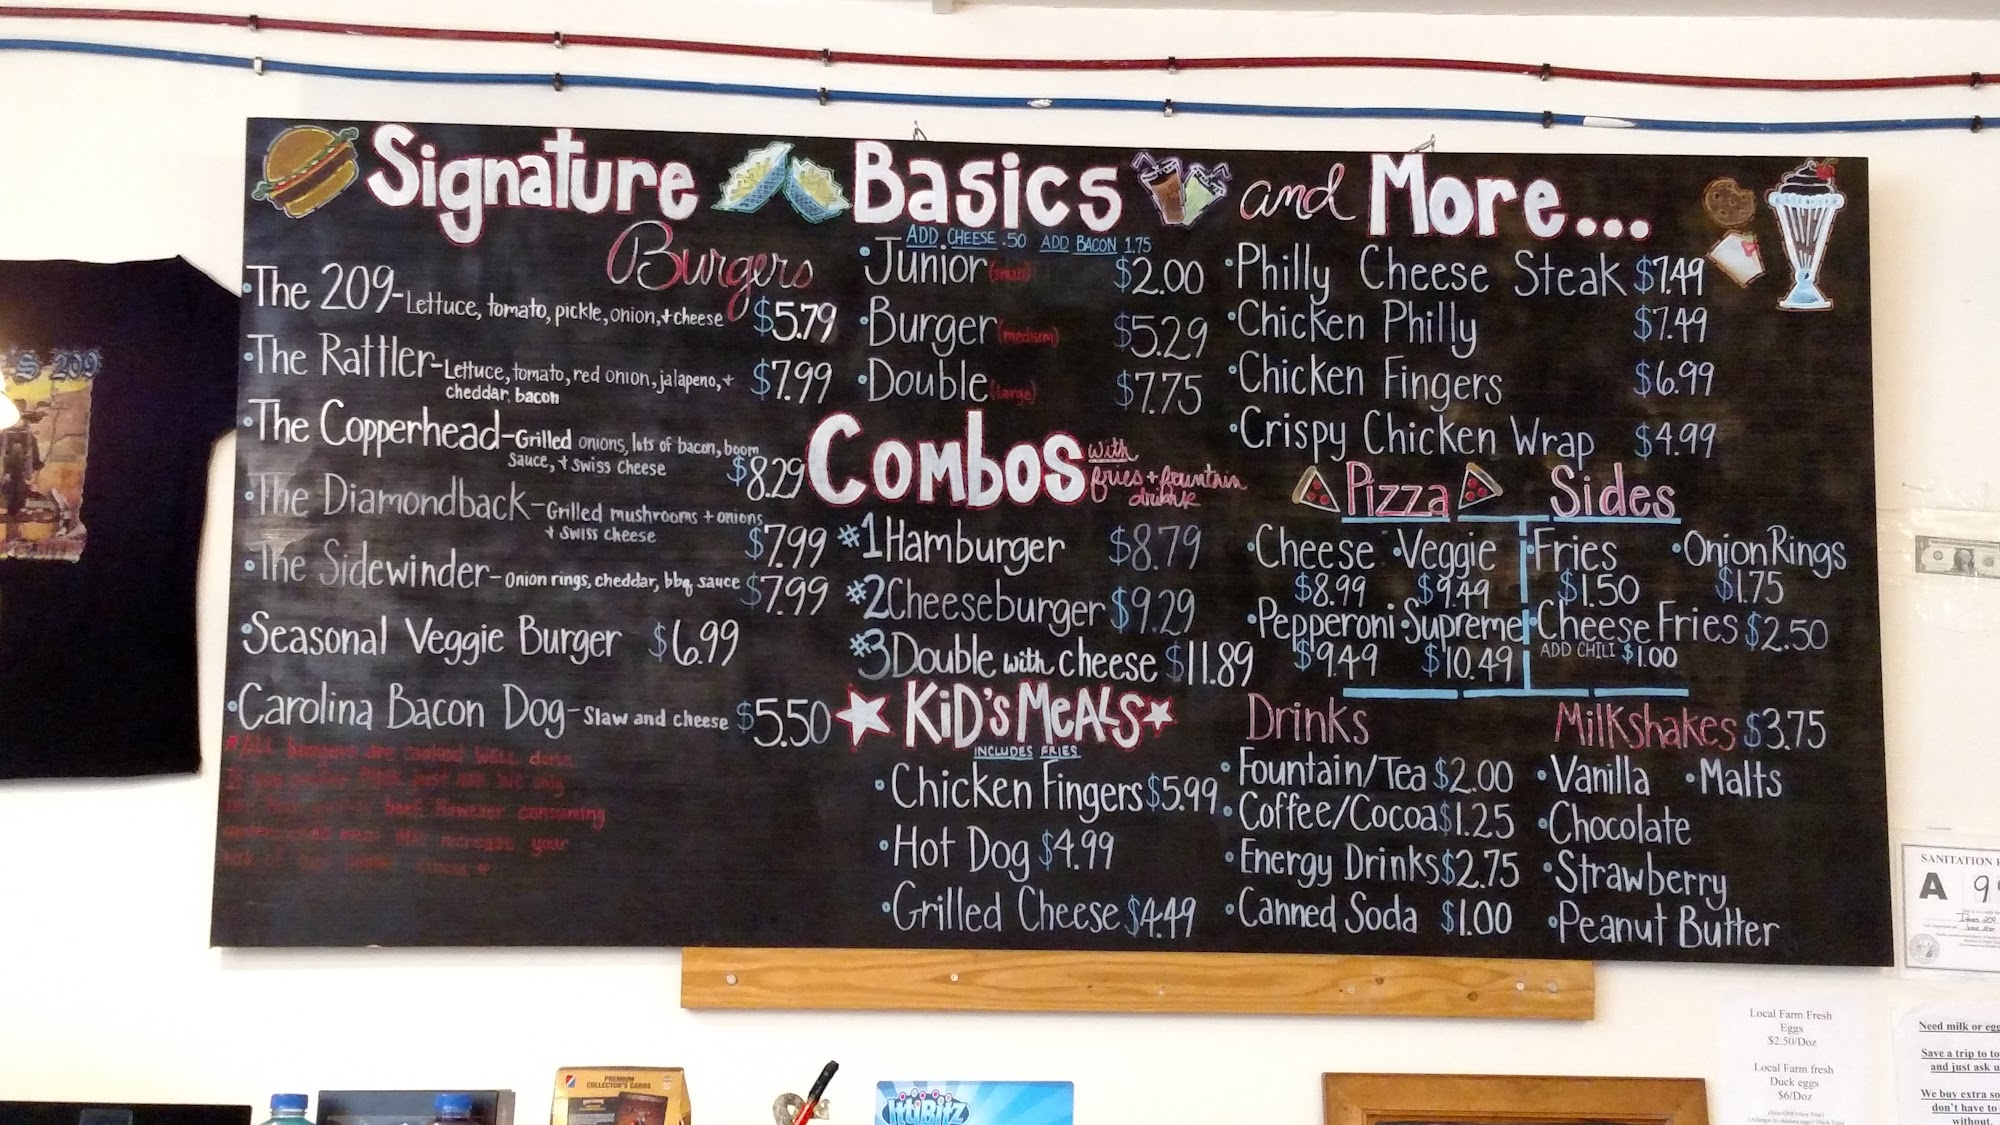 Signature
Burgers
•The 209-Lettuce, tomato, pickle, onion, + cheese $5.79
•The Rattler-Lettuce, tomato, red onion, jalapeno, + $7.99
cheddar, bacon
•The Copperhead-Grilled onions, lots of bacon, boom
Sauce, + Swiss cheese $8.29
•The Diamondback-Grilled mushrooms + onions
+ Swiss cheese $7.99
•The Sidewinder-Onion rings, cheddar, bbq sauce $7.99
•Seasonal Veggie Burger $6.99
•Carolina Bacon Dog-Slaw and cheese $5.50
*ALL burgers are cooked WELL done.
just ask. We only
beef. However consuming
meat may increase your
Basics
ADD CHEESE .50 ADD BACON 1.75
•Junior (small) $2.00
•Burger (medium) $5.29
•Double (large) $7.75
Combos with
fries + fountain
drink
#1 Hamburger $8.79
#2 Cheeseburger $9.29
#3 Double with cheese $11.89
KiD'S MeALS
INCLUDES FRIES
•Chicken Fingers $5.99
•Hot Dog $4.99
•Grilled Cheese $4.49
and More...
•Philly Cheese Steak $7.49
•Chicken Philly $7.49
•Chicken Fingers $6.99
•Crispy Chicken Wrap $4.99
Pizza
•Cheese •Veggie
$8.99 $9.49
•Pepperoni •Supreme
$9.49 $10.49
Sides
•Fries •Onion Rings
$1.50 $1.75
•Cheese Fries $2.50
ADD CHILI $1.00
Drinks
•Fountain/Tea $2.00
•Coffee/Cocoa $1.25
•Energy Drinks $2.75
•Canned Soda $1.00
MilKshakes $3.75
•Vanilla •Malts
•Chocolate
•Strawberry
•Peanut Butter
S 209
SANITATION
A 9
Local Farm Fresh
Eggs
$2.50/Doz
Local Farm fresh
Duck eggs
$6/Doz
Need milk or egg
Save a trip to to
and just ask u
We buy extra so
don't have to
without.
PREMIUM
COLLECTOR'S CARDS
IttiBitz